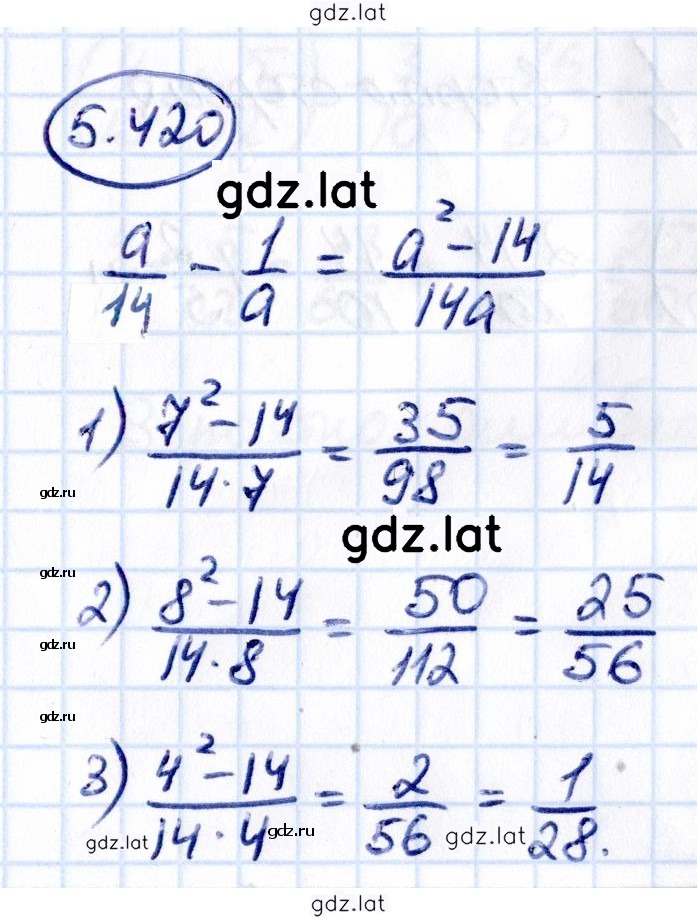 gdz.lat
5.420
gdz.lat
a/14 - 1/a = (a² - 14)/(14a)
1) (7² - 14)/(14 · 7) = 35/98 = 5/14
gdz.ru
gdz.lat
gdz.ru
2) (8² - 14)/(14 · 8) = 50/112 = 25/56
gdz.ru
gdz.ru
3) (4² - 14)/(14 · 4) = 2/56 = 1/28.
gdz.lat gdz.ru gdz.lat
gdz.lat